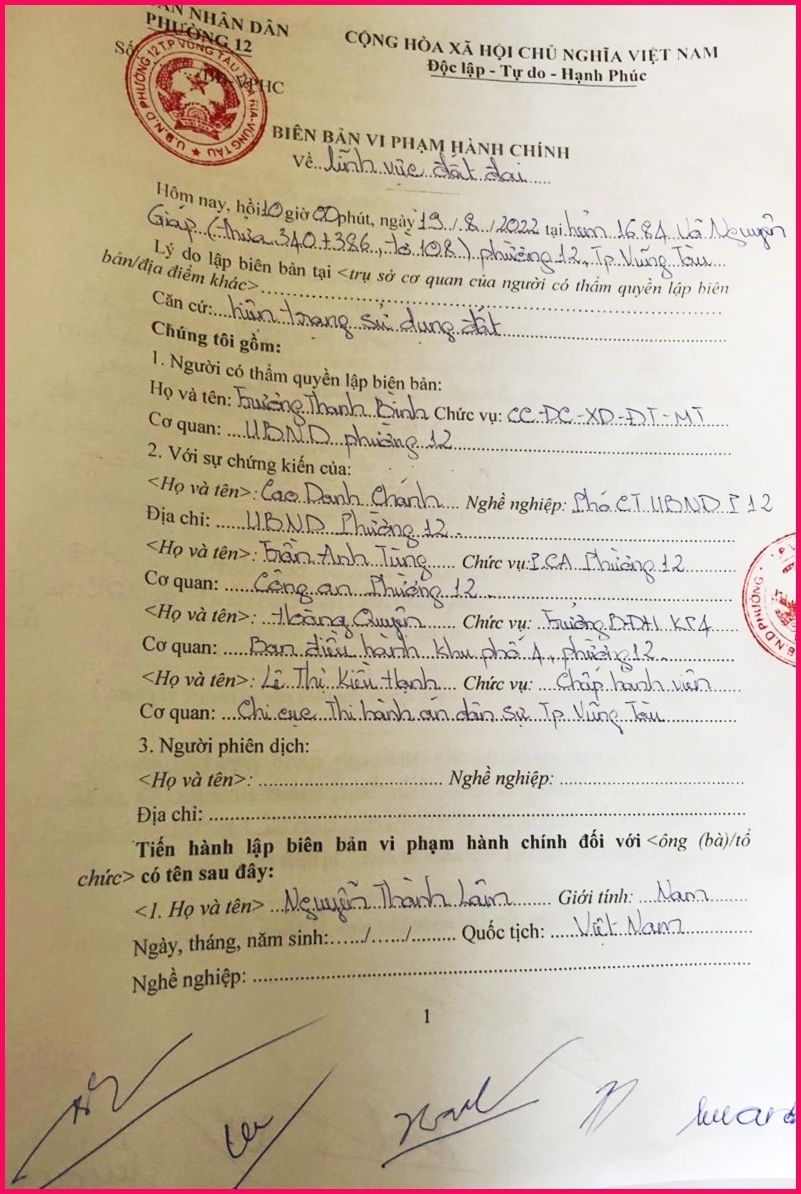 ÂN NHÂN DÂN
PHƯỜNG 12
CỘNG HÒA XÃ HỘI CHỦ NGHĨA VIỆT NAM
Số
VPHC
Độc lập - Tự do - Hạnh Phúc
U.B.N.D PHƯỜNG 12 T.P VŨNG TÀU T. BÀ RỊA-VŨNG TÀU
BIÊN BẢN VI PHẠM HÀNH CHÍNH
Về lĩnh vực đất đai
Hôm nay, hồi 10 giờ 00 phút, ngày 19/8/2022 tại hẻm 1684 Võ Nguyên
Giáp (thửa 340+386, tờ 108) phường 12, Tp Vũng Tàu
Lý do lập biên bản tại <trụ sở cơ quan của người có thẩm quyền lập biên
bản/địa điểm khác>
Căn cứ: hiện trạng sử dụng đất
Chúng tôi gồm:
1. Người có thẩm quyền lập biên bản:
Họ và tên: Trương Thanh Bình Chức vụ: CC-ĐC-XD-ĐT-MT
Cơ quan: UBND phường 12
2. Với sự chứng kiến của:
<Họ và tên>: Cao Danh Chánh Nghề nghiệp: Phó CT UBND P 12
Địa chỉ: UBND Phường 12
<Họ và tên>: Trần Anh Tùng Chức vụ: P.CA Phường 12
Cơ quan: Công an Phường 12
<Họ và tên>: Hoàng Quyên Chức vụ: Trưởng BĐH KP4
U.B.N.D PHƯỜNG
Cơ quan: Ban điều hành khu phố 4, phường 12
<Họ và tên>: Lê Thị Kiều Hạnh Chức vụ: Chấp hành viên
Cơ quan: Chi cục Thi hành án dân sự Tp. Vũng Tàu
3. Người phiên dịch:
<Họ và tên>: Nghề nghiệp:
Địa chỉ:
Tiến hành lập biên bản vi phạm hành chính đối với <ông (bà)/tổ
chức> có tên sau đây:
<1. Họ và tên> Nguyễn Thành Lâm Giới tính: Nam
Ngày, tháng, năm sinh:....../....../.......... Quốc tịch: Việt Nam
Nghề nghiệp:
1